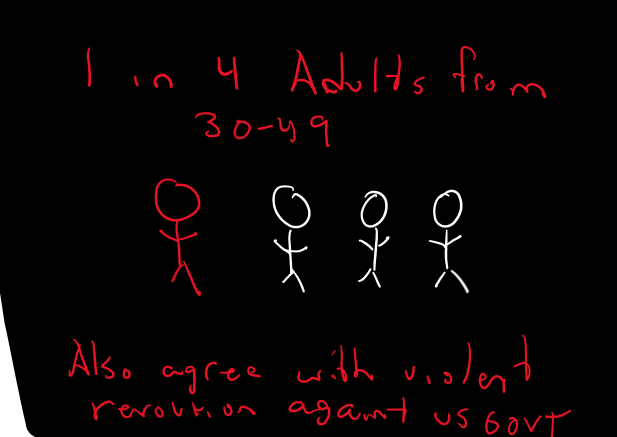 1 in 4 Adults from
30-49
Also agree with violent
revoution against US GOVT